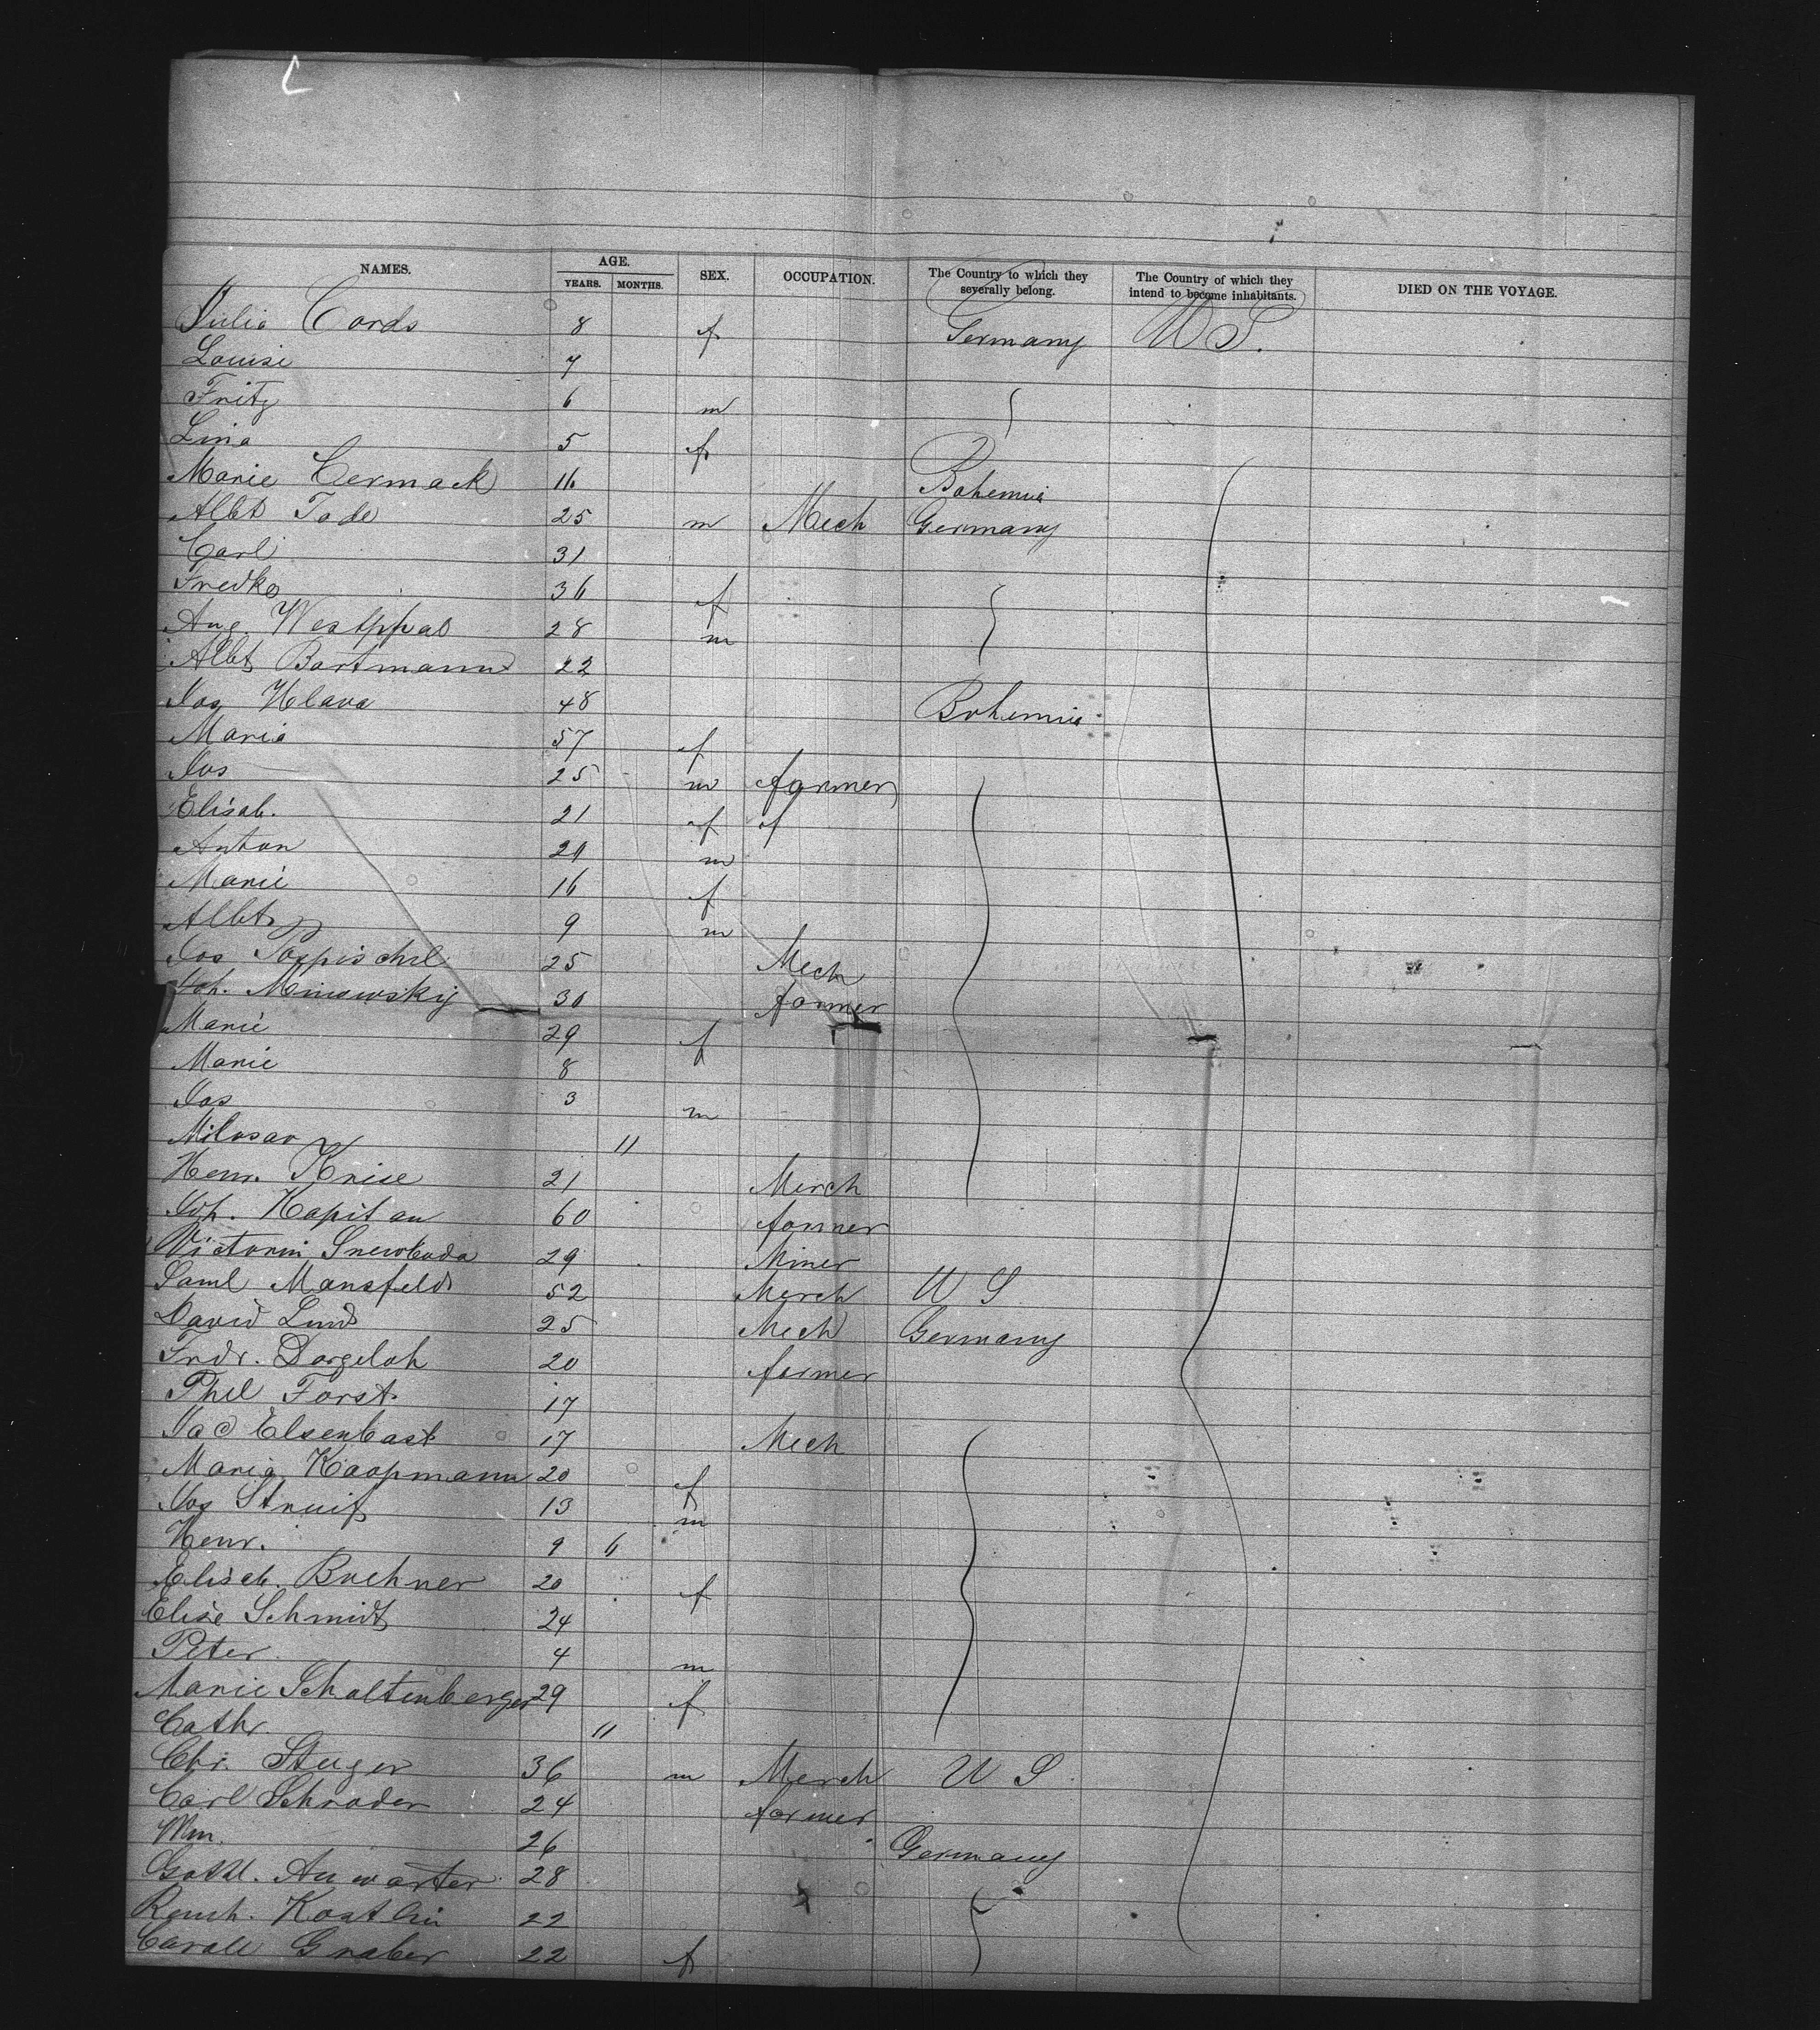 NAMES. AGE. YEARS. MONTHS. SEX. OCCUPATION. The Country to which they severally belong. The Country of which they intend to become inhabitants. DIED ON THE VOYAGE.
Julia Cords 8 f Germany U S.
Louise 7
Fritz 6 m
Lina 5 f
Marie Cermack 16 Bohemia
Albt Tode 25 m Mech Germany
Carl 31
Fredke 36 f
Aug Westphal 28 m
Albt Bartmann 22
Jos Hlava 48 Bohemia
Maria 57 f
Jos 25 m farmer
Elisab. 21 f f
Anton 20 m
Marie 16 f
Albt 9 m
Jos Pospischil 25 Mech
Joh. Minowsky 30 farmer
Marie 29 f
Marie 8
Jos 3 m
Milosav 11
Henr. Knise 21 Merch
Joh. Kapitan 60 farmer
Victorin 29 Miner
Saml Mansfeld 52 Merch U S
David Lind 25 Mech Germany
Fredr. Dargeloh 20 farmer
Phil Forst. 17
Jac Elsenbast 17 Mech
Maria Koopmann 20 f
Jos Struif 13 m
Henr. 9 6
Elisab. Buchner 20 f
Elise Schmidt 24
Peter 4 m
Marie Schaltenberger 29 f
Cathr. 11
Chr. Steger 36 m Merch U S
Carl Schrader 24 farmer
Wm. 26 Germany
Gottl. Anwarter 28
Reinh. Kostlin 22
Carole Graber 22 f